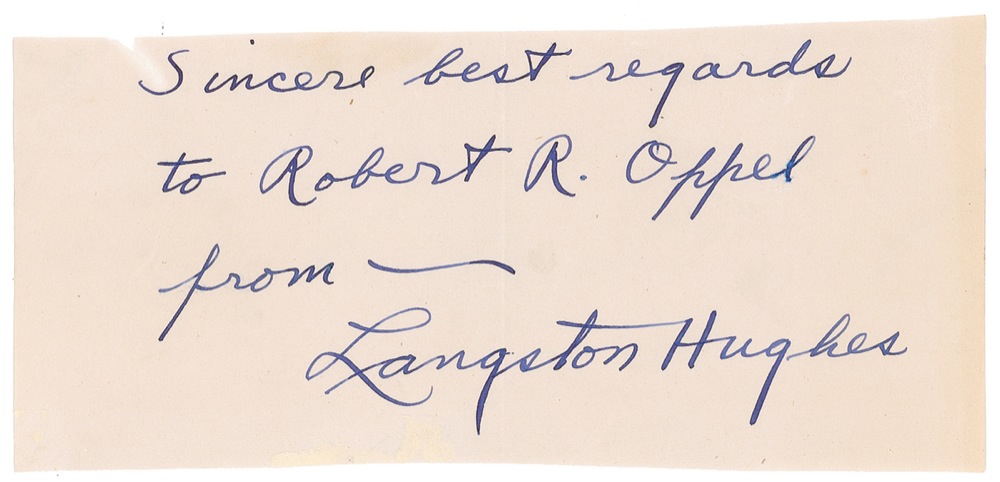 Sincere best regards
to Robert R. Oppel
from —
Langston Hughes